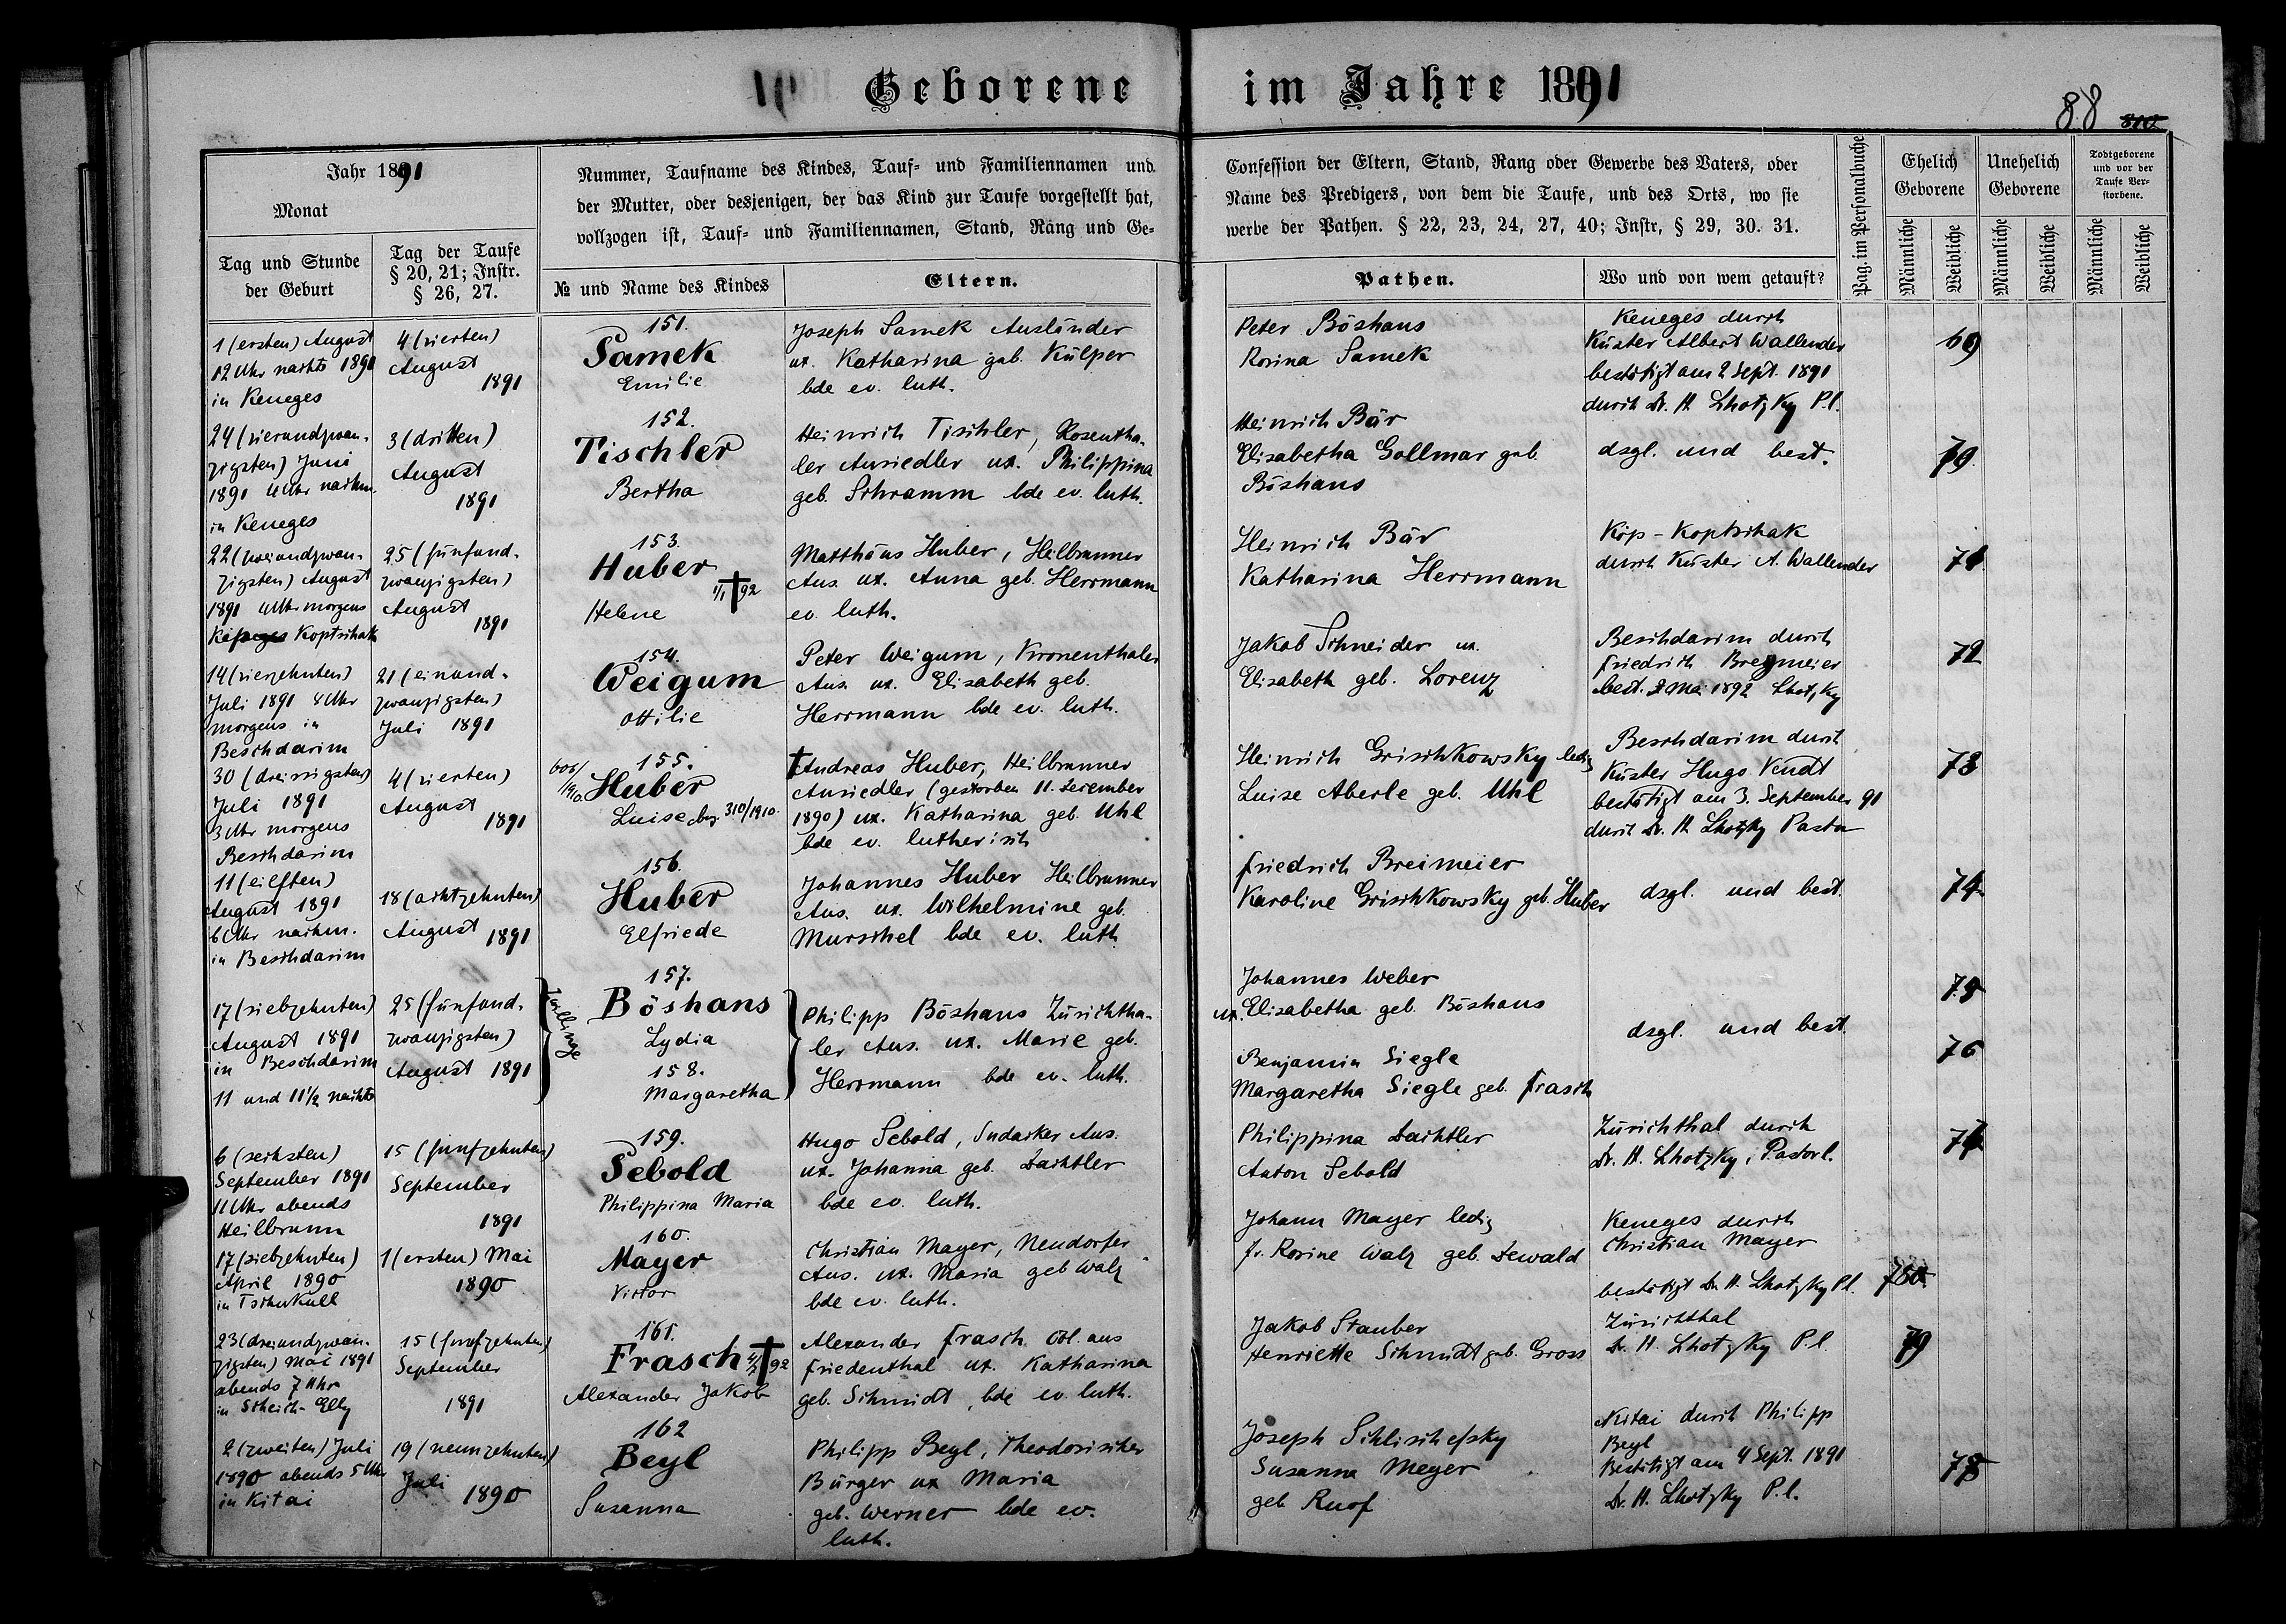 Geborene im Jahre 1891
88
Jahr 1891
Monat
Tag und Stunde
der Geburt
Tag der Taufe
§ 20, 21; Instr.
§ 26, 27.
Nummer, Taufname des Kindes, Tauf- und Familiennamen und
der Mutter, oder desjenigen, der das Kind zur Taufe vorgestellt hat,
vollzogen ist, Tauf- und Familiennamen, Stand, Rang und Ge-
№ und Name des Kindes
Eltern.
Confession der Eltern, Stand, Rang oder Gewerbe des Vaters, oder
Name des Predigers, von dem die Taufe, und des Orts, wo sie
werbe der Pathen. § 22, 23, 24, 27, 40; Instr, § 29, 30. 31.
Pathen.
Wo und von wem getauft?
Pag. im Personalbuche
Ehelich
Geborene
Unehelich
Geborene
Todtgeborene
und vor der
Taufe Ver-
storbene.
Männliche
Weibliche
Männliche
Weibliche
Männliche
Weibliche
1 (ersten) August
12 Uhr nachts 1891
in Keneges
4 (vierten)
August
1891
151.
Samek
Emilie
Joseph Samek Ausländer
ux. Katharina geb. Külper
bde ev. luth.
Peter Böshans
Rosina Samek
Keneges durch
Küster Albert Wallender
bestätigt am 2 Sept. 1891
durch Dr. H. Lhotzky P.l.
69
24 (vierundzwan-
zigsten) Juni
1891 4 Uhr nachm.
in Keneges
3 (dritten)
August
1891
152.
Tischler
Bertha
Heinrich Tischler, Rosentha-
ler Ansiedler ux. Philippina
geb. Schramm bde ev. luth.
Heinrich Bär
Elisabetha Gollmar geb.
Böshans
dsgl. und best.
70
22 (zweiundzwan-
zigsten) August
1891 4 Uhr morgens
Koptschak
25 (fünfund-
zwanzigsten)
August
1891
153.
Huber
1/1 † 92
Helene
Matthäus Huber, Heilbrunner
Ans. ux. Anna geb. Herrmann
ev. luth.
Heinrich Bär
Katharina Herrmann
Kop-Koptschak
durch Küster A. Wallender
71
14 (vierzehnten)
Juli 1891 4 Uhr
morgens in
Beschdarim
21 (einund-
zwanzigsten)
Juli 1891
154.
Weigum
Ottilie
Peter Weigum, Kronenthaler
Ans. ux. Elisabeth geb.
Herrmann bde ev. luth.
Jakob Schneider ux.
Elisabeth geb. Lorenz
Beschdarim durch
Friedrich Bregmeier
best. 2 Mai 1892 Lhotzky
72
30 (dreissigsten)
Juli 1891
3 Uhr morgens
Beschdarim
4 (vierten)
August
1891
155.
Huber
Luise 310/1910.
† Andreas Huber, Heilbrunner
Ansiedler (gestorben 11. Dezember
1890) ux. Katharina geb. Uhl
bde ev. lutherisch
Heinrich Grischkowsky ledig
Luise Aberle geb. Uhl
Beschdarim durch
Küster Hugo Vendt
bestätigt am 3. September 91
durch Dr. H. Lhotzky Pastor
73
11 (eilften)
August 1891
6 Uhr nachm.
in Beschdarim
18 (achtzehnten)
August 1891
156.
Huber
Elfriede
Johannes Huber Heilbrunner
Ans. ux. Wilhelmine geb.
Murschel bde ev. luth.
Friedrich Breimeier
Karoline Grischkowsky geb. Huber
dsgl. und best.
74
17 (siebzehnten)
August 1891
in Beschdarim
11 und 11½ nachts
25 (fünfund-
zwanzigsten)
August 1891
Zwillinge
157.
Böshans
Lydia
158.
Margaretha
Philipp Böshans Zürichtha-
ler Ans. ux. Marie geb.
Herrmann bde ev. luth.
Johannes Weber
ux. Elisabetha geb. Böshans
Benjamin Siegle
Margaretha Siegle geb. Frasch
dsgl. und best.
75
76
6 (sechsten)
September 1891
11 Uhr abends
Heilbrunn
15 (fünfzehnten)
September
1891
159.
Sebold
Philippina Maria
Hugo Sebold, Sudacker Ans.
ux. Johanna geb. Dachtler
bde ev. luth.
Philippina Dachtler
Anton Sebold
Zürichthal durch
Dr. H. Lhotzky, Pastor l.
77
17 (siebzehnten)
April 1890
in Tschukull
1 (ersten) Mai
1890
160.
Mayer
Victor
Christian Mayer, Neudorfer
Ans. ux. Maria geb Walz
bde ev. luth.
Johann Mayer ledig
fr. Rosine Walz geb. Dewald
Keneges durch
Christian Mayer
bestätigt Dr. H. Lhotzky P.l.
23 (dreiundzwan-
zigsten) Mai 1891
abends 7 Uhr
in Scheich-Elly
15 (fünfzehnten)
September
1891
161.
Frasch † 92
Alexander Jakob
Alexander Frasch Col. aus
Friedenthal ux. Katharina
geb. Schmidt, bde ev. luth.
Jakob Stauber
Henriette Schmidt geb. Gross
Zürichthal
Dr. H. Lhotzky P.l.
79
2 (zweiten) Juli
1890 abends 5 Uhr
in Kitai
19 (neunzehnten)
Juli
1890
162
Beyl
Susanna
Philipp Beyl, Theodosischer
Bürger ux Maria
geb. Werner bde ev.
luth.
Joseph Schlischefsky
Susanna Meyer
geb. Ruof
Kitai durch Philipp
Beyl
Bestätigt am 4 Sept. 1891
Dr. H. Lhotzky P.l.
78